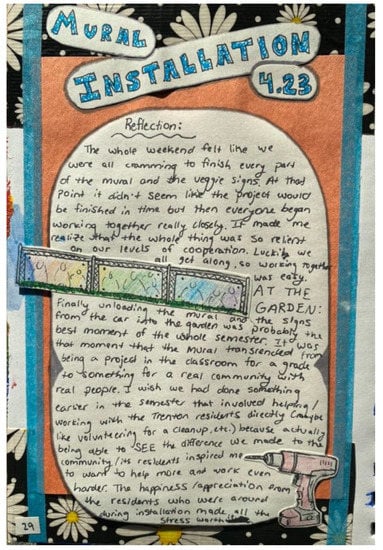 MURAL
INSTALLATION
4.23
Reflection:
The whole weekend felt like we
were all cramming to finish every part
of the mural and the veggie signs. At that
point it didn't seem like the project would
be finished in time but then everyone began
working together really closely. It made me
realize that the whole thing was so relient
on our levels of cooperation. Luckily we
all get along, so working together
was easy.
AT THE
GARDEN:
Finally unloading the mural and the signs
from the car into the garden was probably the
best moment of the whole semester. It was
that moment that the mural transcended from
being a project in the classroom for a grade
to something for a real community with
real people. I wish we had done something
earlier in the semester that involved helping/
working with the Trenton residents directly (maybe
like volunteering for a cleanup, etc.) because actually
being able to SEE the difference we made to the
community/its residents inspired me
to want to help more and work even
harder. The happiness/appreciation from
the residents who were around
during installation made all the
stress worth
29